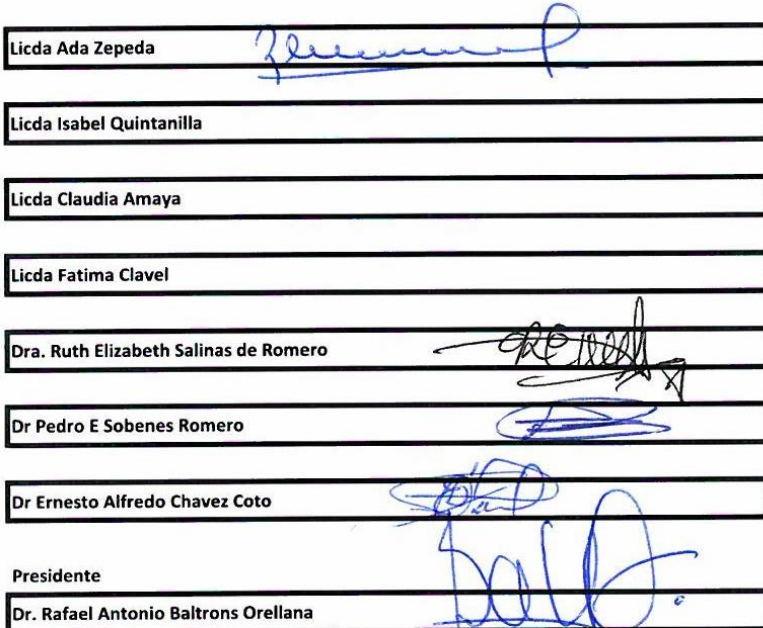 Licda Ada Zepeda
Licda Isabel Quintanilla
Licda Claudia Amaya
Licda Fatima Clavel
Dra. Ruth Elizabeth Salinas de Romero
Dr Pedro E Sobenes Romero
Dr Ernesto Alfredo Chavez Coto
Presidente
Dr. Rafael Antonio Baltrons Orellana